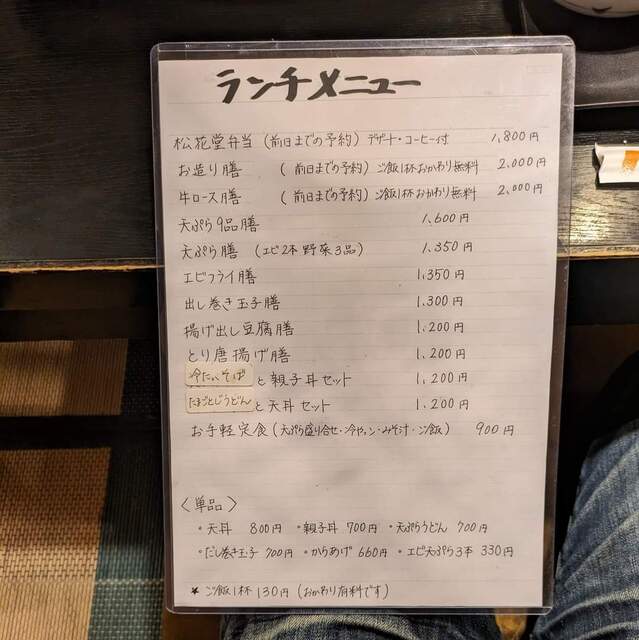 ランチメニュー
松花堂弁当 (前日までの予約) デザート・コーヒー付 1,800円
お造り膳 (前日までの予約) ご飯1杯おかわり無料 2,000円
牛ロース膳 (前日までの予約) ご飯1杯おかわり無料 2,000円
天ぷら9品膳 1,600円
天ぷら膳 (エビ2本 野菜3品) 1,350円
エビフライ膳 1,350円
出し巻き玉子膳 1,300円
揚げ出し豆腐膳 1,200円
とり唐揚げ膳 1,200円
冷たいそば と 親子丼セット 1,200円
たまごとじうどん と 天丼セット 1,200円
お手軽定食 (天ぷら盛り合せ・冷やッコ・みそ汁・ご飯) 900円
〈単品〉
・天丼 800円 ・親子丼 700円 ・天ぷらうどん 700円
・だし巻き玉子 700円 ・からあげ 660円 ・エビ天ぷら3本 330円
★ ご飯1杯 130円 (おかわり有料です)